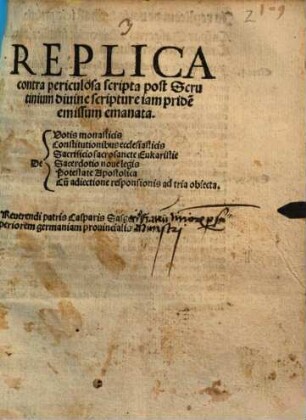 3
1-9
REPLICA
contra periculosa scripta post Scru
tinium Diuine scripture iam pridē
emissum emanata.
De
Votis monasticis
Constitutionibus ecclesiasticis
Sacrificio sacrosancte Eukaristie
Sacerdotio noue legis
Potestate Apostolica
Cū adiectione responsionis ad tria obiecta.
Reuerendi patris Casparis Sasgeri
periorem germaniam prouincialis Ministri